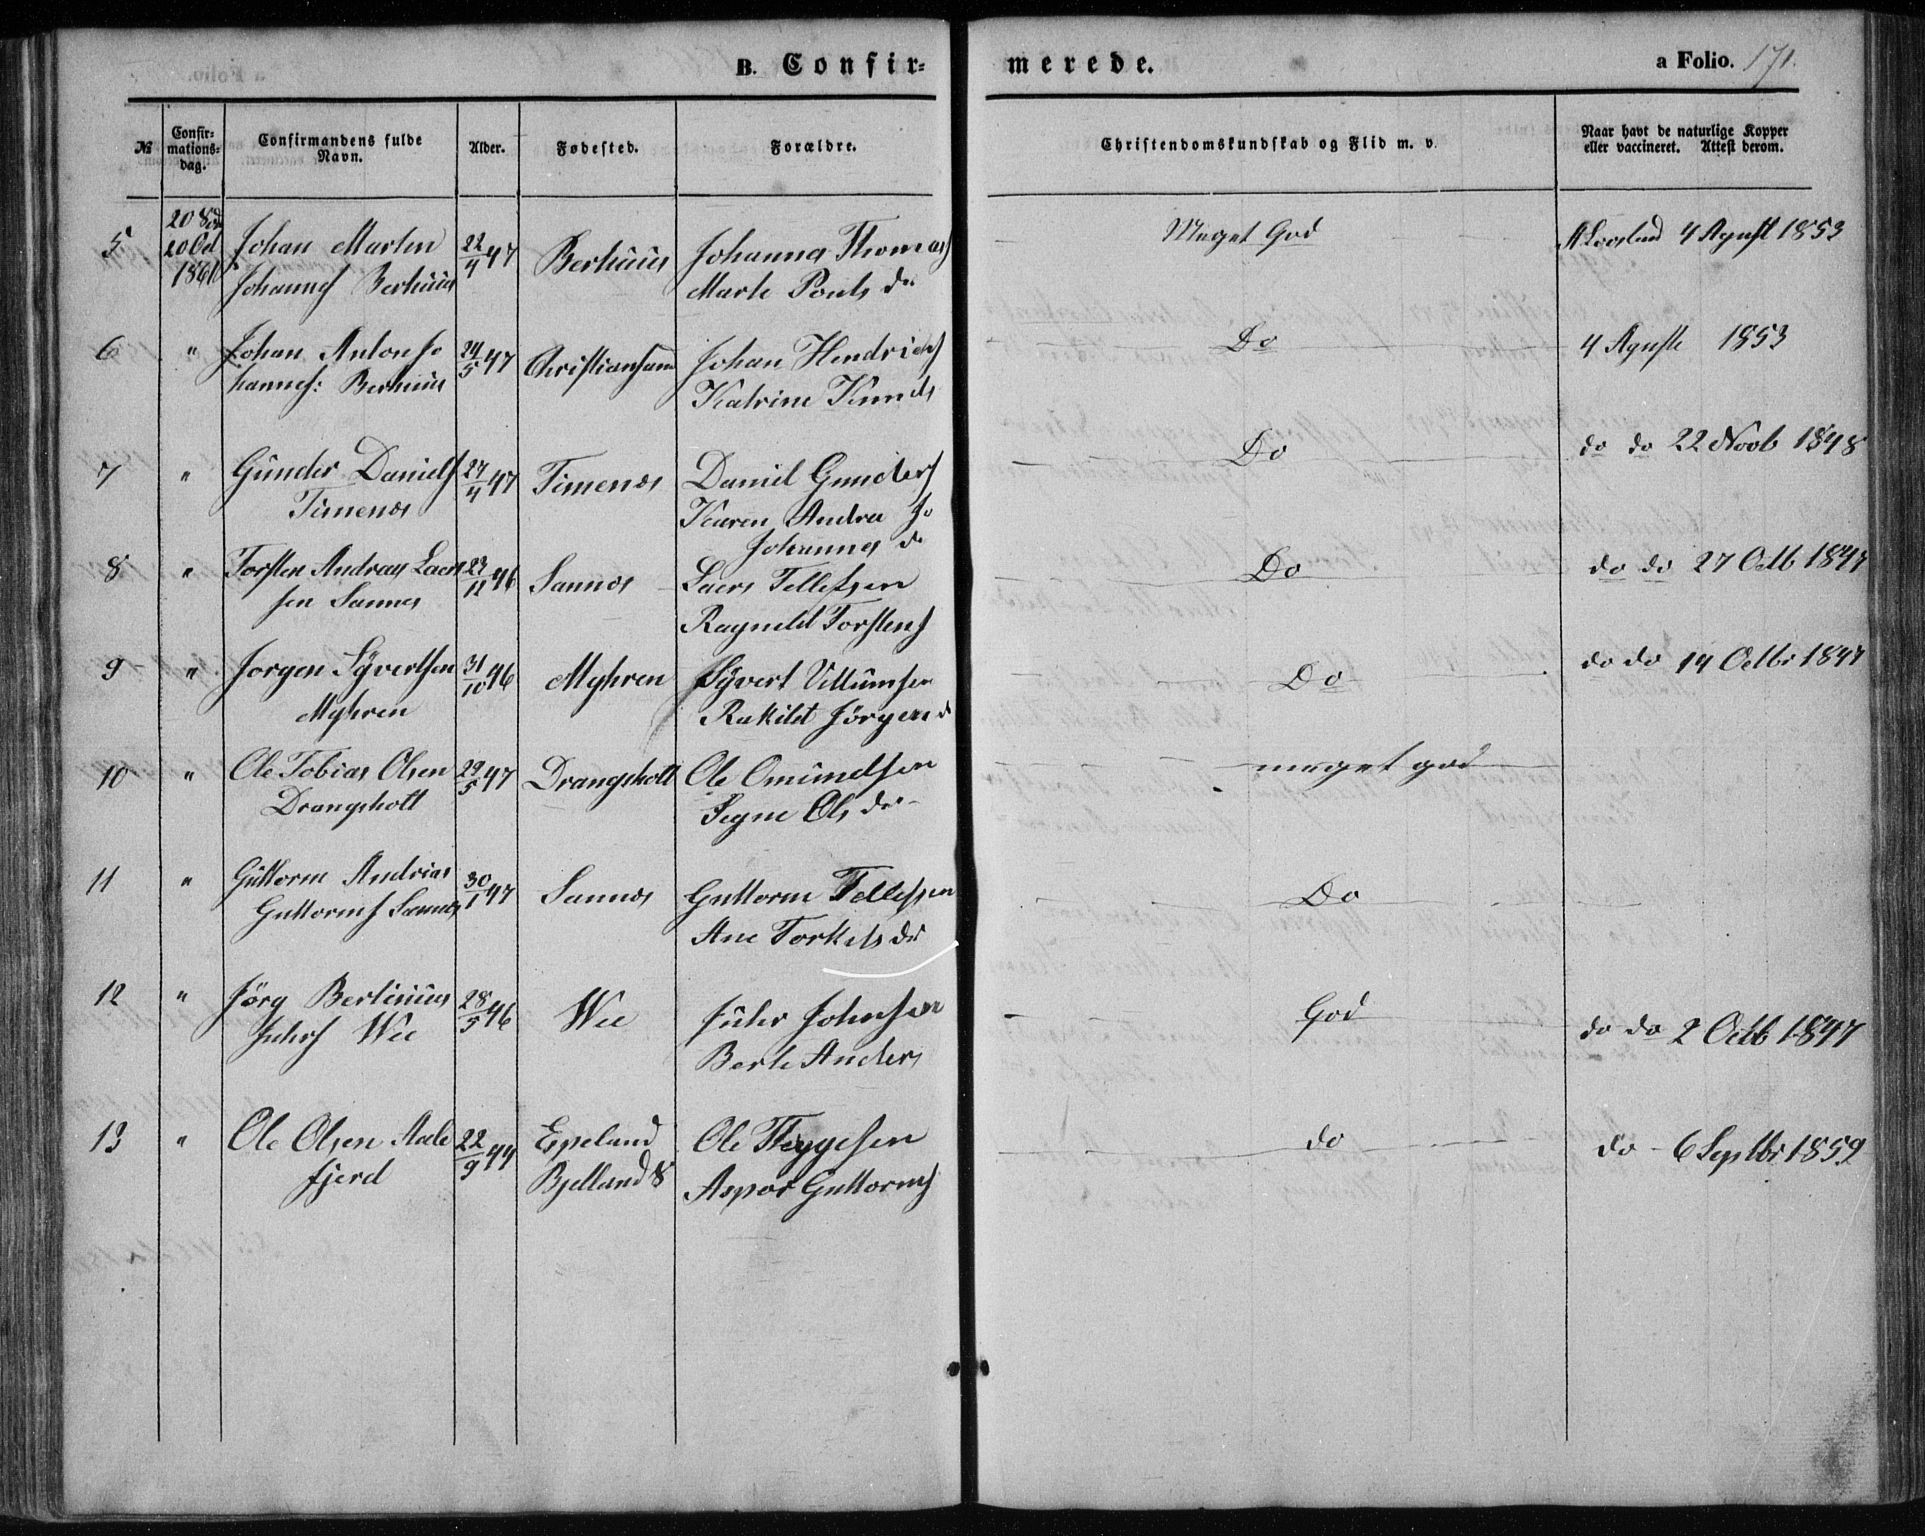 B. Confir=
merede.
a Folio. 171.
№
Confir=
mations=
dag.
Confirmandens fulde
Navn.
Alder.
Fødested.
Forældre.
Christendomskundskab og Flid m. v.
Naar havt de naturlige Kopper
eller vaccineret. Attest derom.
5
20
20 Oct
1861
Johan Martin
Johannes Berhuus
22/4 47
Berhuus
Johannes Thomas
Marte Pouls dr
Meget God
4 Agust 1853
6 "
Johan Anton Jo
hannes: Berhuus
24/5 47
Christiansand
Johan Hendrichs
Katrine Knuds
Do
4 Aguste 1853
7 "
Gunder Daniels
Timenes
27/4 47
Timenes
Daniel Gunders
Karen Andrea Jo
Johannes d
Do
do do 22 Novb 1848
8 "
Torsten Andreas Laer
sen Sannes
23/12 46
Sannes
Laers Tellefsen
Ragnild Torstens
Do
do do 27 Octb 1847
9 "
Jorgen Syvertsen
Myhren
31/10 46
Myhren
Syvert Villumsen
Rakild Jörgens d
Do
do do 14 Octbr 1847
10 "
Ole Tobias Olsen
Drangsholt
29/5 47
Drangsholt
Ole Omundsen
Segne Ols dr
meget god
11 "
Guttorm Andrias
Guttorms Sannes
30/1 47
Sannes
Guttorm Tellefsen
Ane Torkels dr
Do
12 "
Jörg Bertinius
Juhrs Wee
28/5 46
Wee
Juhr Johnsen
Berte Anders
God
do do 2 Octb 1847
13 "
Ole Olsen Aale
fjerd
22/9 44
Espeland
Bjelland S
Ole Tleygesen
Aspor Guttorms
do
do 6 Septbr 1859